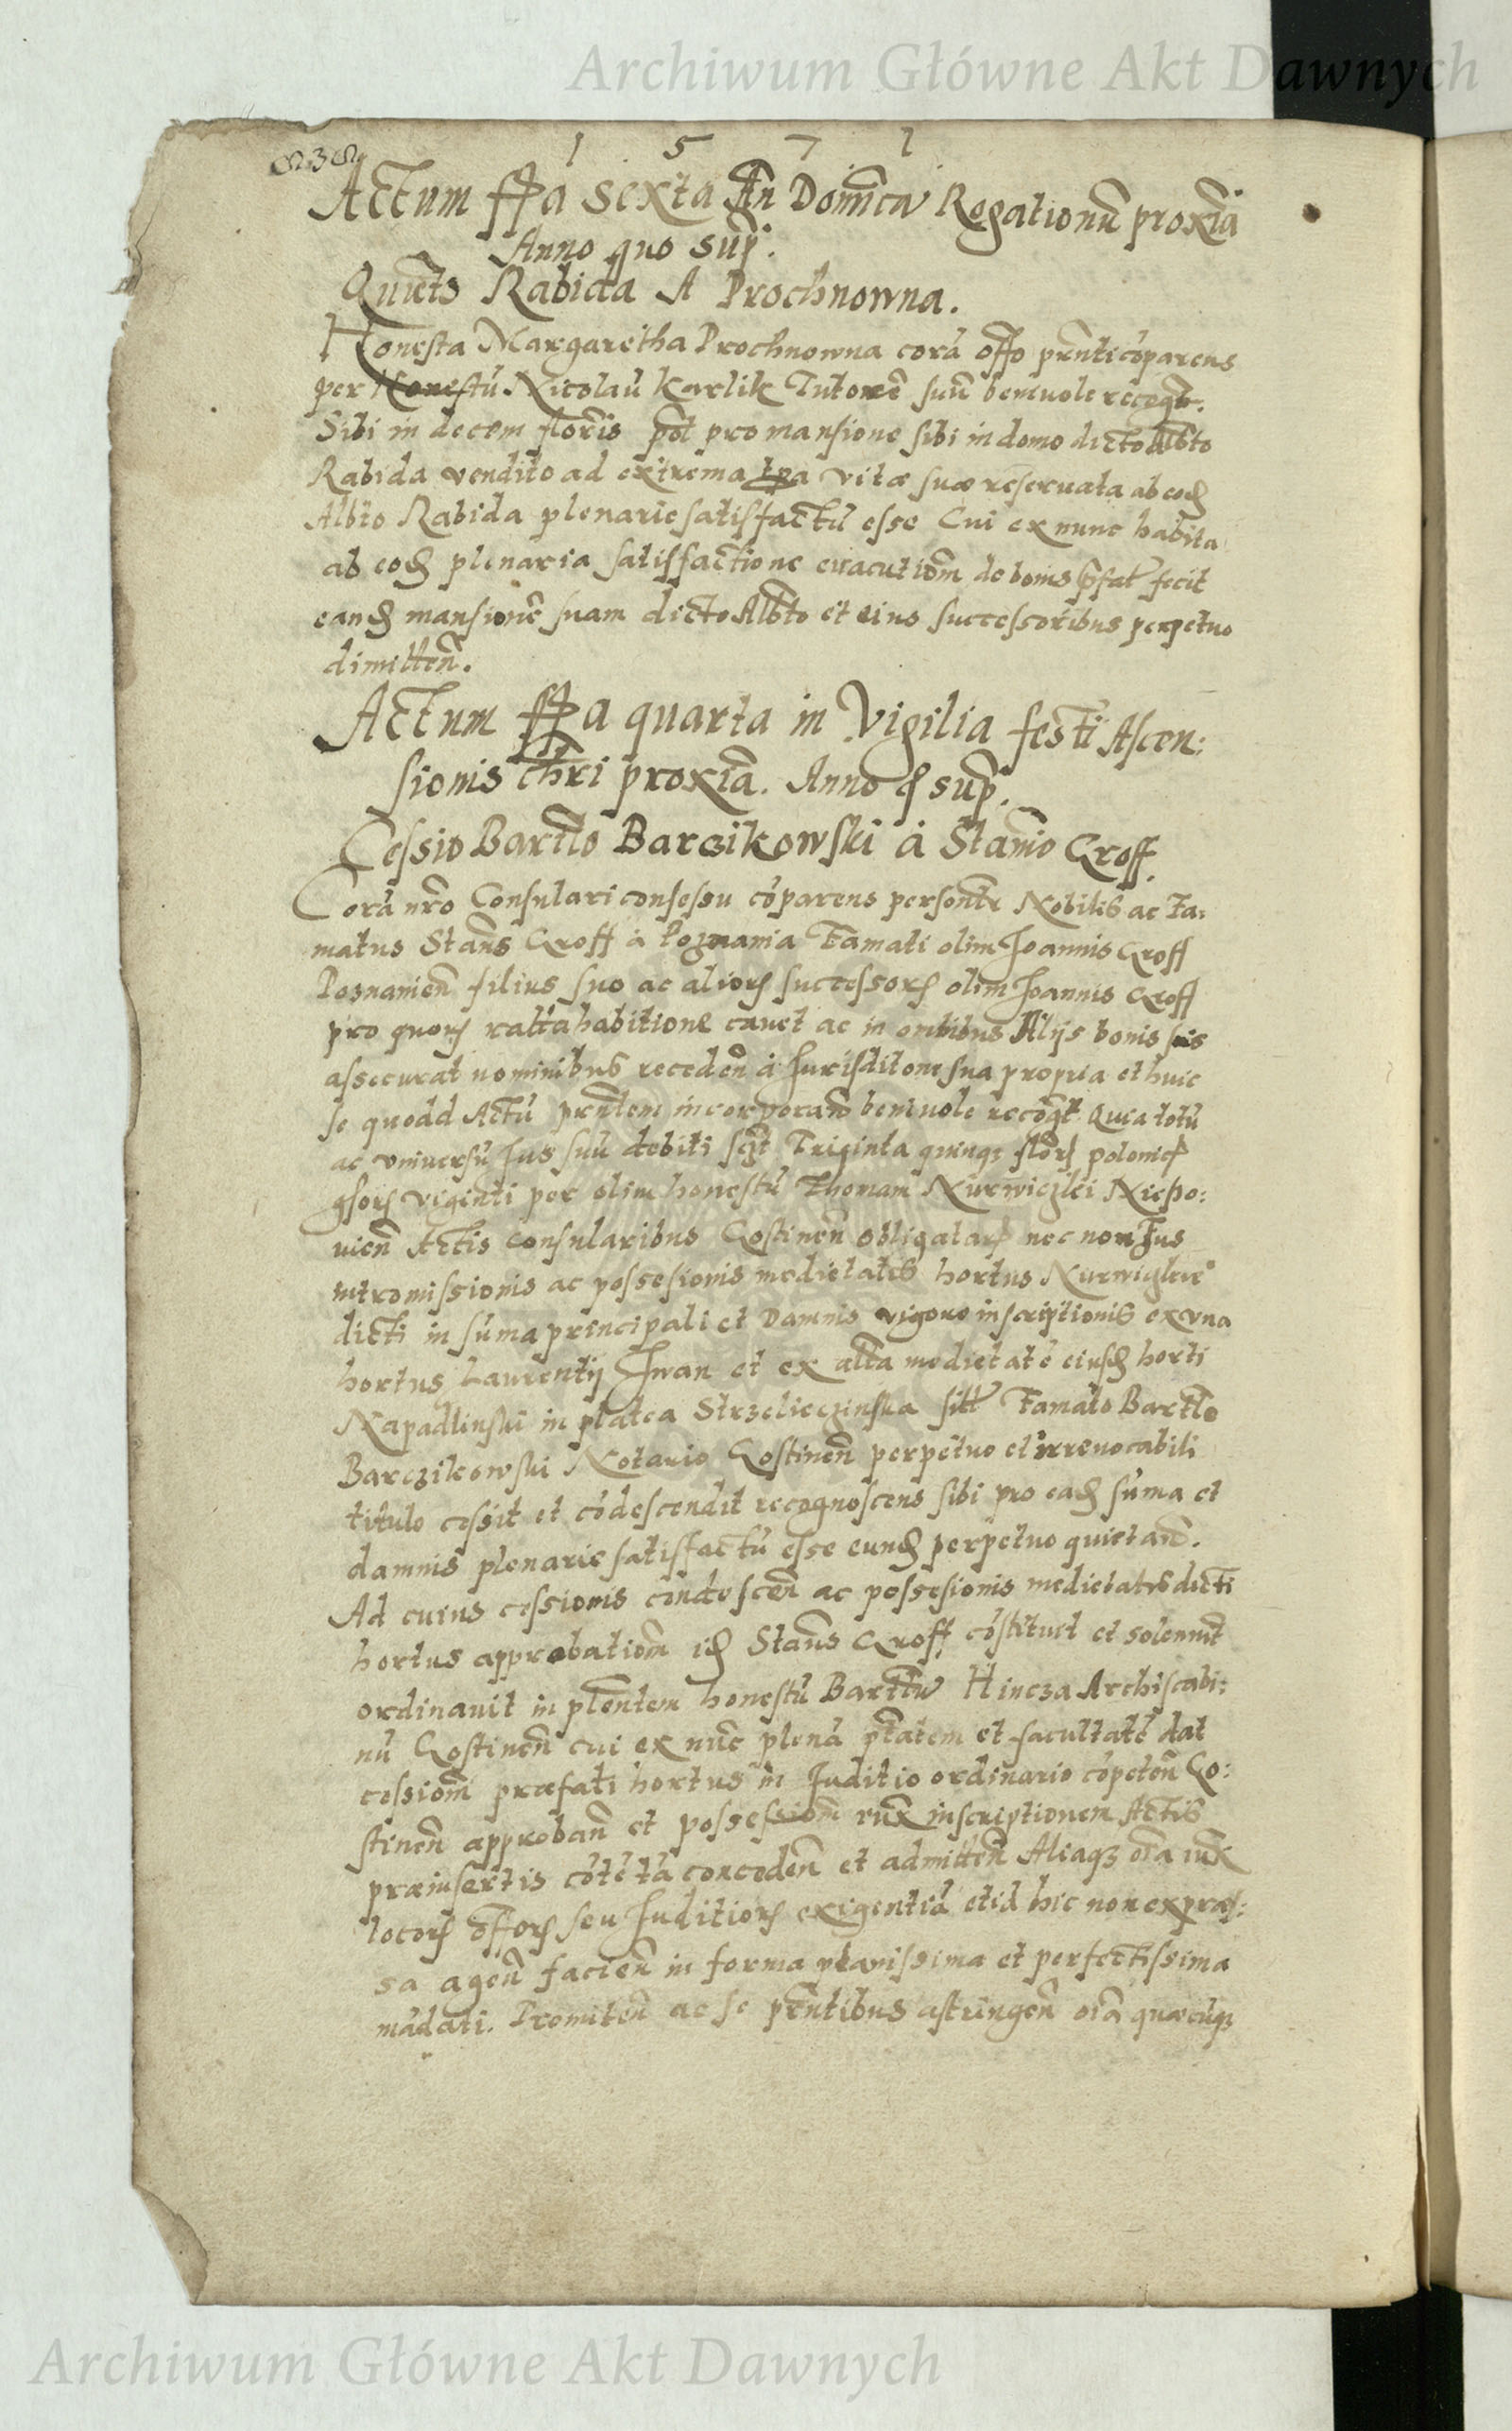 Archiwum Główne Akt Dawnych
1 5 7 1
838
Actum ffa sexta An Domica Rogationũ proxĩa
Anno quo sup.
Quiets Rabida A Prochnowna.
Honesta Margaretha Prochnowna corã offo prnti cõparens
per Honestũ Nicolaũ Karlik Tutorẽ suũ beniuole recogt.
Sibi in decem floris pol pro mansione sibi in domo dicto Albto
Rabida vendito ad extrema tpa vitæ suæ reseruata ab eod
Albto Rabida plenarie satisfactũ esse Cui ex nunc habita
ab eod plenaria satisfactione euacutiom de bonis pfat fecit
eand mansionẽ suam dicto Albto et eius successoribus perpetuo
dimitten.
Actum ffa quarta in Vigilia festi Ascen:
sionis Chri proxĩa. Anno q sup.
Cessio Bartlo Barzikowski à Stanio Groff.
Corã nro Consulari consessu cõparens personlr Nobilis ac Fa:
matus Stans Groff à Poznania Famati olim Joannis Groff
Poznanien filius suo ac aliors successors olim Joannis Groff
pro quors rattahabitione cauet ac in omibus Alijs bonis suis
assecurat nominibus receden à Jurisditone sua propria et huic
se quoad Actũ prntem incorporan beniuole recogt. Quia totũ
ac vniuersũ Jus suũ debiti sct Triginta quinqz flors polonic
gsors viginti per olim honestũ Thomam Nurwiczki Niepo:
uien Actis Consularibus Gostinen obligatars nec non Jus
intromissionis ac possesionis medietatis hortus
dicti in sũma principali et Damnis vigore inscriptionis ex vna
hortus Laurentij Iwan et ex alta medietatẽ eiusd horti
Napadlinski in platea Strzelieczinska sitt Famato Bartlo
Barczikowski Notario Gostinen perpetuo et irreuocabili
titulo cessit et cõdescendit recognoscens sibi pro ead sũma et
damnis plenarie satisfactũ esse eund perpetuo quietan.
Ad cuius cessionis condescen ac possesionis medietatis dicti
hortus approbatiom id Stans Groff cõstituit et solennit
ordinauit in plentem honestũ Barttũ Hincza Archiscabi:
nũ Gostinen cui ex nũc plenã ptatem et facultatẽ dat
cessiom præfati hortus in Juditio ordinario cõpeten Go:
stinen approban et possessiom iux inscriptionem Actis
præinsertis cõtẽtã conceden et admitten Aliaqz oia iux
locors offors seu Juditiors exigentiã etiã hic non expræs:
sa agen facien in forma planissima et perfectissima
mãdati. Promiten ac se prntibus astringen oia quæcũqz
Archiwum Główne Akt Dawnych